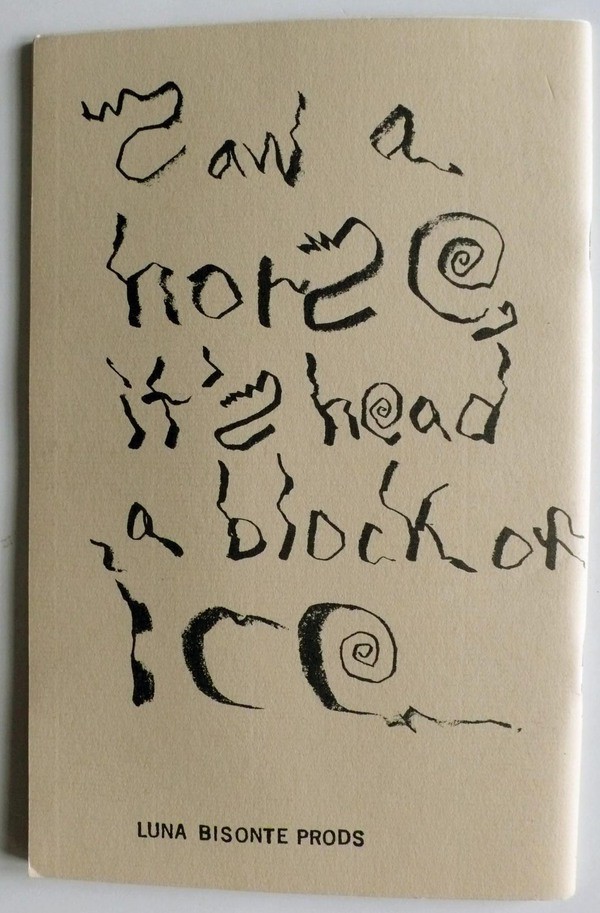 Saw a
horse,
it's head
a block of
Ice
LUNA BISONTE PRODS